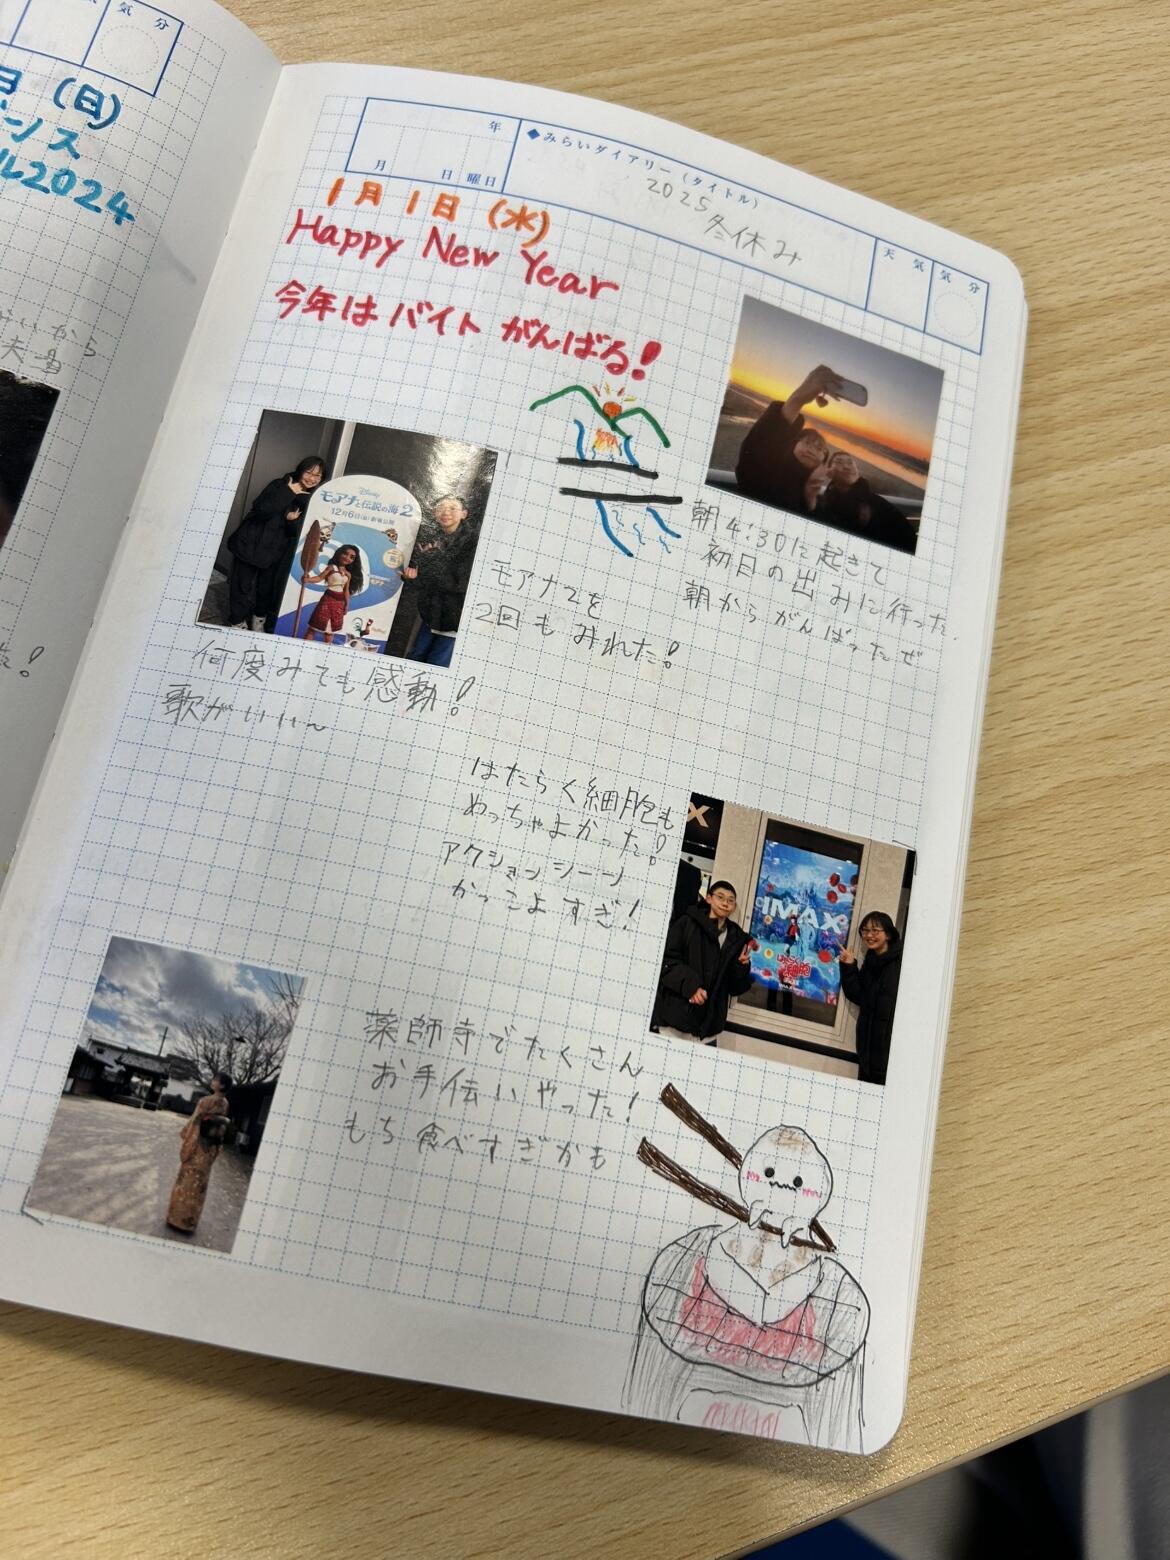 気分
日(日)
ル2024
年
月 日 曜日
◆みらいダイアリー(タイトル)
2025
冬休み
天気
気分
1月1日(水)
Happy New Year
今年はバイトがんばる!
朝4:30に起きて
初日の出みに行った.
朝からがんばったぜ
Disney
モアナと伝説の海2
12月6日(金)
モアナ2を
2回もみれた!
何度みても感動!
歌がいい〜
はたらく細胞も
めっちゃよかった!
アクションシーン
かっこよすぎ!
X
IMAX
はたらく細胞
薬師寺でたくさん
お手伝いやった!
もち食べすぎかも